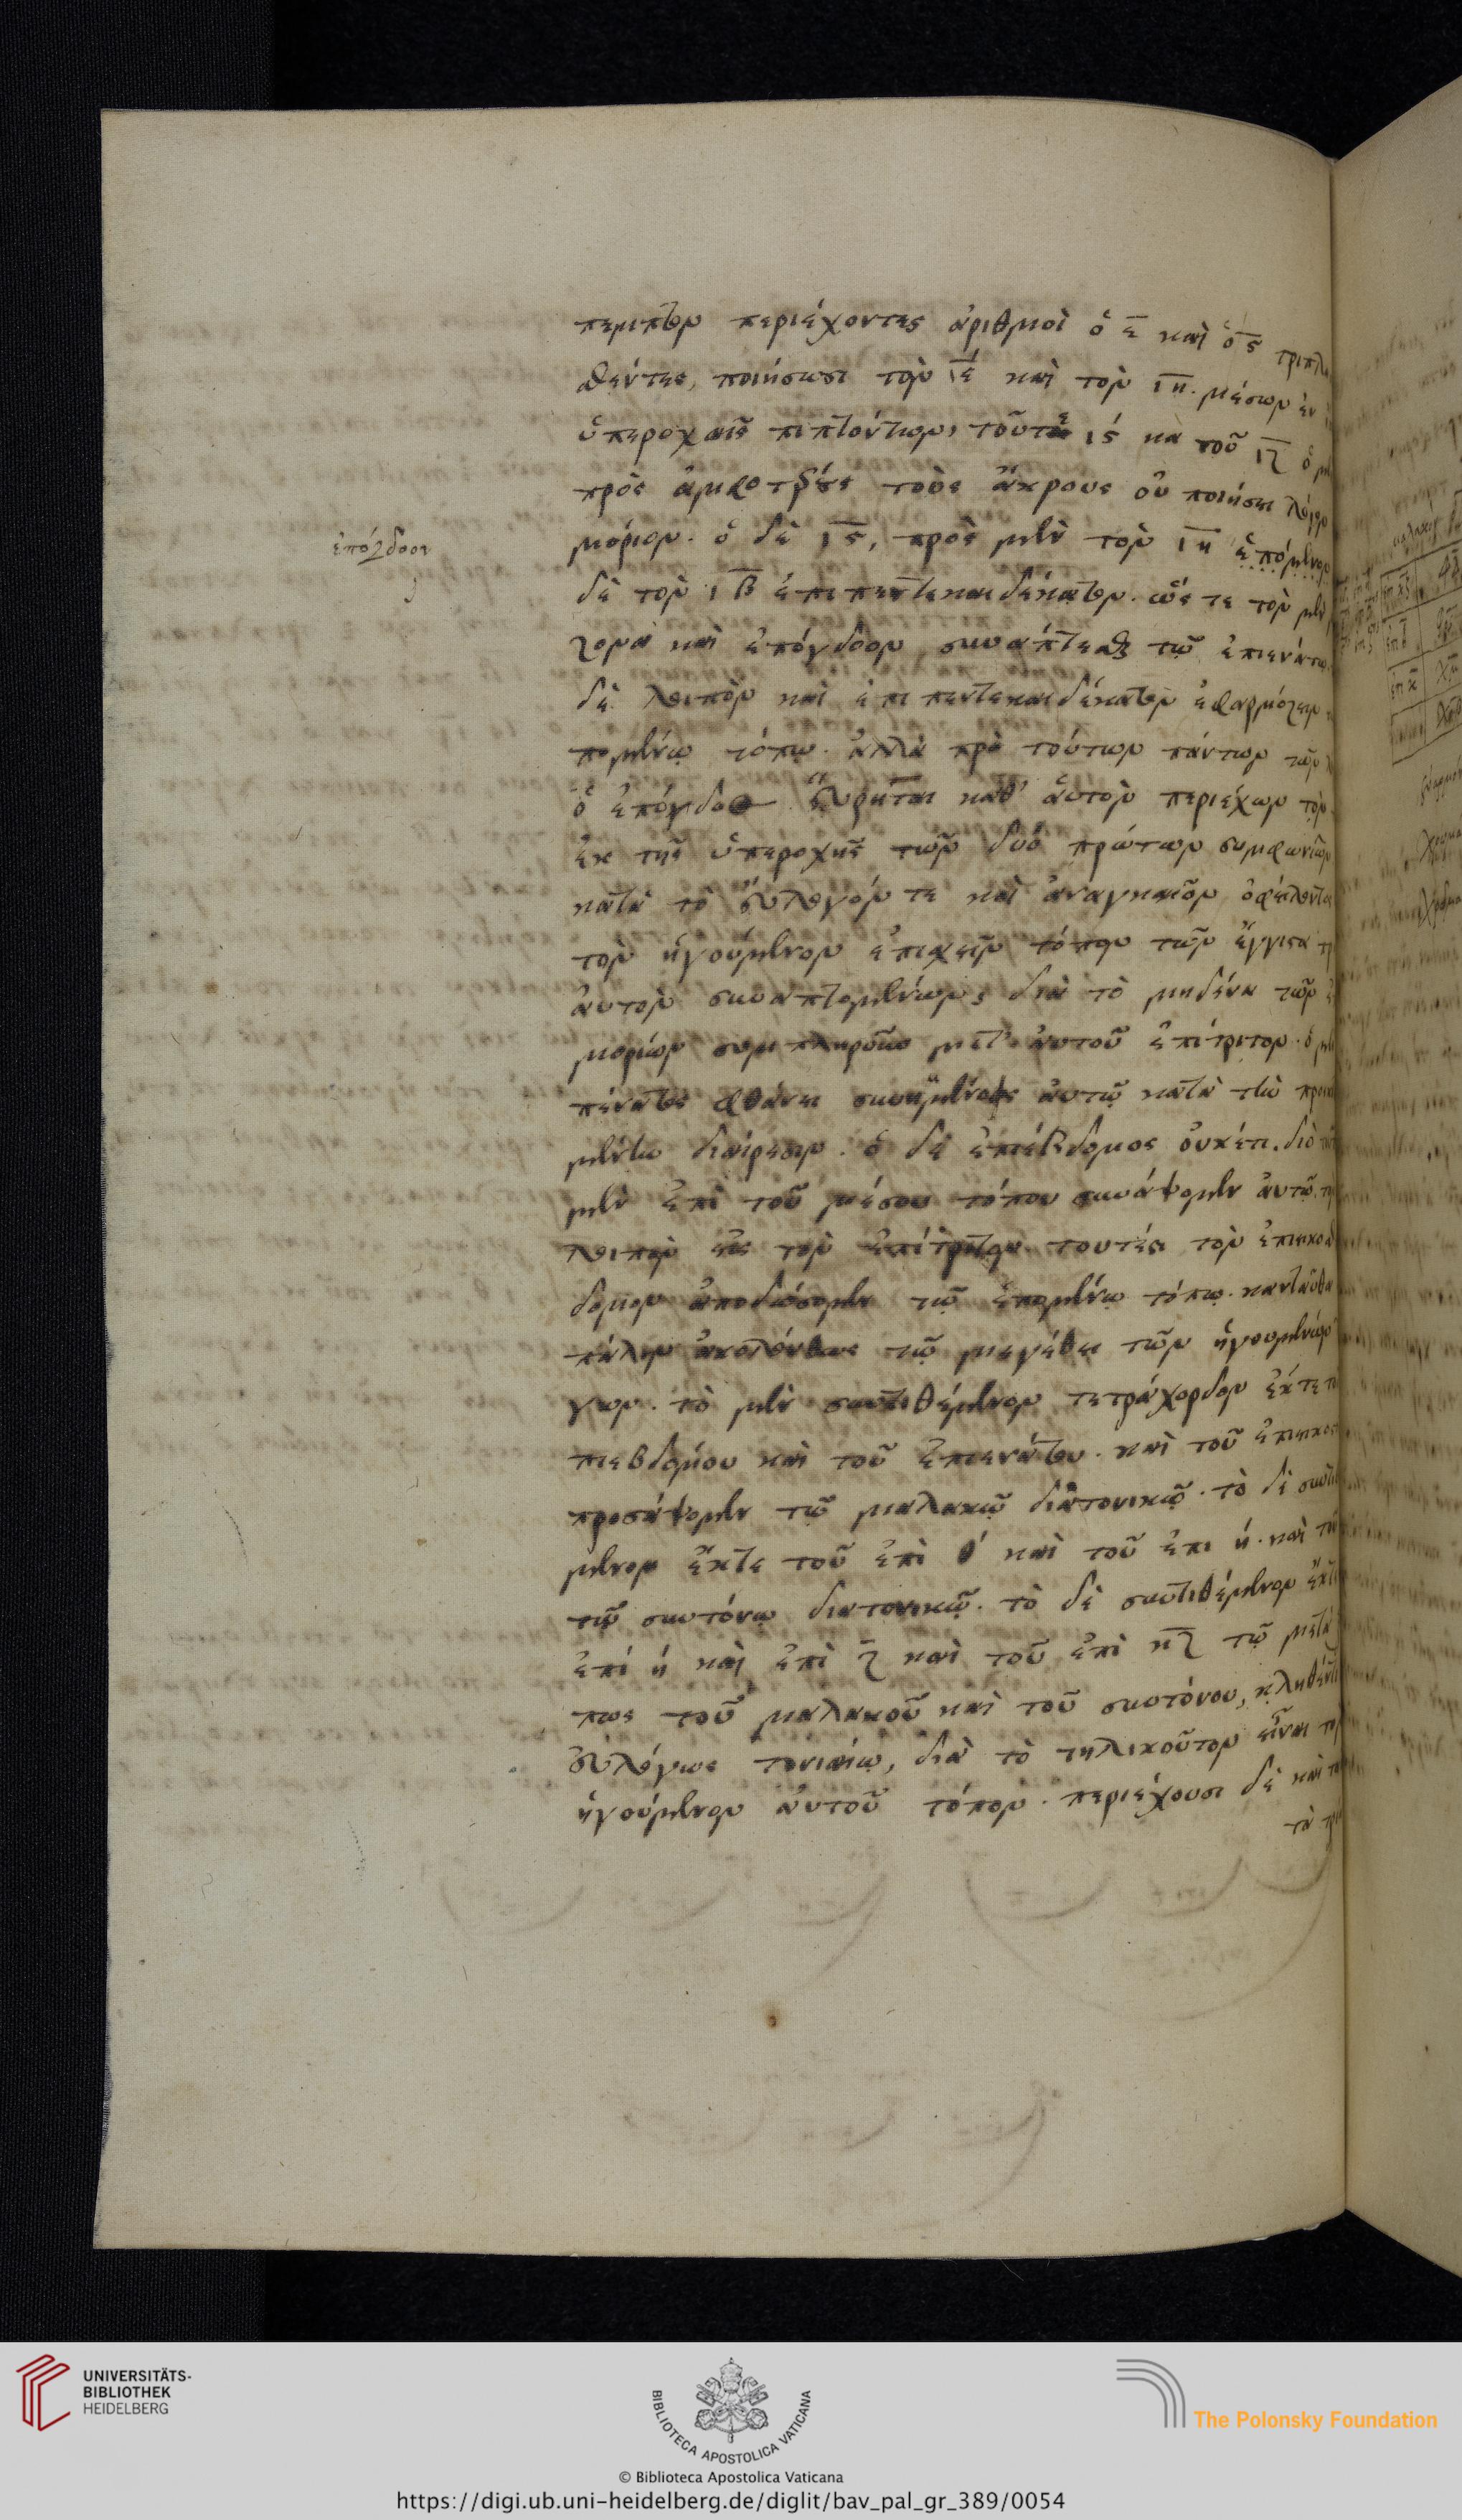 πεμπτον περιέχοντες ἀριθμοὶ ὁ ε καὶ ὁ ς τριπλ
θέντες, ποιήσωσι τὸν ιε καὶ τὸν ιη. μέσων ἐν
ὑπεροχαῖς πιπτόντων, τοῦτε ις κὰ τοῦ ιζ ὁ
πρὸς ἀμφοτέρους τοὺς ἄκρους οὐ ποιήσει λόγον
μόριον. ὁ δὲ ις, πρὸς μὲν τὸν ιη ἑπόμενον
ἐπόγδοον
δὲ τὸν ιβ ἐπιπεντεκαιδέκατον. ὥς τε τὸν μὲν
ζονα καὶ ἐπόγδοον συνάπτεσθαι τῷ ἐπιενάτω
δὲ λοιπὸν καὶ ἐπιπεντεκαιδέκατον ἐφαρμόζειν
πομένῳ τόπῳ. ἀλλὰ πρὸ τούτων πάντων τῶν
ὁ ἐπόγδοος εὕρηται καθ' αὑτὸν περιέχων τὸν
ἐκ τῆς ὑπεροχῆς τῶν δύο πρώτων συμφωνιῶν
κατὰ τὸ εὔλογόν τε καὶ ἀναγκαῖον ὀφείλοντος
τὸν ἡγούμενον ἐπιχεῖν τόπον τῶν ἔγγιστα
αὐτὸν συναπτομένων, διὰ τὸ μηδένα τῶν
μορίων συμπληροῦν μετ' αὐτοῦ ἐπίτριτον. ὁ
πένατος φθάνει συνημμένος αὐτῷ κατὰ τὴν προ
μένην διαίρεσιν. ὁ δὲ ἐπιέβδομος οὐκέτι. διὸ
μὲν ἐπὶ τοῦ μέσου τόπου συνάψομεν αὐτῷ,
λοιπὸν εἰς τὸν ἐπίτριτον τουτέστι τὸν ἐπιεικοσ
δομον ἀποδώσομεν τῷ ἑπομένῳ τόπῳ. κἀνταῦθα
πάλιν ἀκολούθως τῷ μεγέθει τῶν ἡγουμένων
γων. τὸ μὲν συντιθέμενον τετράχορδον ἔκ τε
πιεβδόμου καὶ τοῦ ἐπιενάτου. καὶ τοῦ ἐπιεικος
προσάψομεν τῷ μαλακῷ διατονικῷ. τὸ δὲ συντι
μενον ἔκ τε τοῦ ἐπὶ θ καὶ τοῦ ἐπι η. καὶ
τῷ συντόνῳ διατονικῷ. τὸ δὲ συντιθέμενον ἔκ
ἐπί η καὶ ἐπὶ ζ καὶ τοῦ ἐπὶ κζ τῷ μετα
πως τοῦ μαλακοῦ καὶ τοῦ συντόνου, κληθέντι
εὐλόγως τονιαίῳ, διὰ τὸ τηλικοῦτον εἶναι
ἡγούμενον αὐτοῦ τόπον. περιέχουσι δὲ καὶ
UNIVERSITÄTS-
BIBLIOTHEK
HEIDELBERG
BIBLIOTECA APOSTOLICA VATICANA
The Polonsky Foundation
© Biblioteca Apostolica Vaticana
https://digi.ub.uni-heidelberg.de/diglit/bav_pal_gr_389/0054